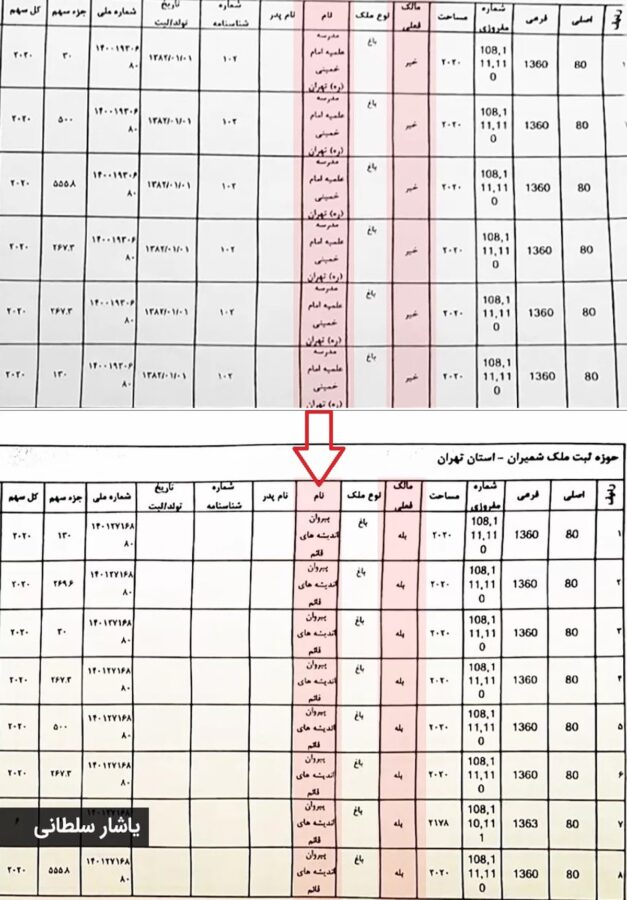 ردیف اصلی فرعی شماره مفروزی مساحت مالک فعلی نوع ملک نام نام پدر شماره شناسنامه تاریخ تولد/ثبت شماره ملی جزء سهم کل سهم
۱ 80 1360 108,111,110 ۲۰۲۰ خیر باغ مدرسه علمیه امام خمینی (ره) تهران ۱۰۲ ۱۳۸۲/۰۱/۰۱ ۱۴۰۰۱۹۳۰۶۸۰ ۳۰ ۲۰۲۰
80 1360 108,111,110 ۲۰۲۰ خیر باغ مدرسه علمیه امام خمینی (ره) تهران ۱۰۲ ۱۳۸۲/۰۱/۰۱ ۱۴۰۰۱۹۳۰۶۸۰ ۵۰۰ ۲۰۲۰
80 1360 108,111,110 ۲۰۲۰ خیر باغ مدرسه علمیه امام خمینی (ره) تهران ۱۰۲ ۱۳۸۲/۰۱/۰۱ ۱۴۰۰۱۹۳۰۶۸۰ ۵۵۵.۸ ۲۰۲۰
80 1360 108,111,110 ۲۰۲۰ خیر باغ مدرسه علمیه امام خمینی (ره) تهران ۱۰۲ ۱۳۸۲/۰۱/۰۱ ۱۴۰۰۱۹۳۰۶۸۰ ۲۶۷.۳ ۲۰۲۰
80 1360 108,111,110 ۲۰۲۰ خیر باغ مدرسه علمیه امام خمینی (ره) تهران ۱۰۲ ۱۳۸۲/۰۱/۰۱ ۱۴۰۰۱۹۳۰۶۸۰ ۲۶۷.۳ ۲۰۲۰
80 1360 108,111,110 ۲۰۲۰ خیر باغ مدرسه علمیه امام خمینی (ره) تهران ۱۰۲ ۱۳۸۲/۰۱/۰۱ ۱۴۰۰۱۹۳۰۶۸۰ ۱۳۰ ۲۰۲۰
حوزه ثبت ملک شمیران - استان تهران
ردیف اصلی فرعی شماره مفروزی مساحت مالک فعلی نوع ملک نام نام پدر شماره شناسنامه تاریخ تولد/ثبت شماره ملی جزء سهم کل سهم
۱ 80 1360 108,111,110 ۲۰۲۰ بله باغ پیروان اندیشه های قائم ۱۴۰۱۲۷۱۶۸۸۰ ۱۳۰ ۲۰۲۰
۲ 80 1360 108,111,110 ۲۰۲۰ بله باغ پیروان اندیشه های قائم ۱۴۰۱۲۷۱۶۸۸۰ ۲۶۹.۶ ۲۰۲۰
۳ 80 1360 108,111,110 ۲۰۲۰ بله باغ پیروان اندیشه های قائم ۱۴۰۱۲۷۱۶۸۸۰ ۳۰ ۲۰۲۰
۴ 80 1360 108,111,110 ۲۰۲۰ بله باغ پیروان اندیشه های قائم ۱۴۰۱۲۷۱۶۸۸۰ ۲۶۷.۳ ۲۰۲۰
۵ 80 1360 108,111,110 ۲۰۲۰ بله باغ پیروان اندیشه های قائم ۱۴۰۱۲۷۱۶۸۸۰ ۵۰۰ ۲۰۲۰
۶ 80 1360 108,111,110 ۲۰۲۰ بله باغ پیروان اندیشه های قائم ۱۴۰۱۲۷۱۶۸۸۰ ۲۶۷.۳ ۲۰۲۰
۷ 80 1363 108,110,111 ۲۱۷۸ بله باغ پیروان اندیشه های قائم ۶
۸ 80 1360 108,111,110 ۲۰۲۰ بله باغ پیروان اندیشه های قائم ۱۴۰۱۲۷۱۶۸۸۰ ۵۵۵.۸ ۲۰۲۰
یاشار سلطانی